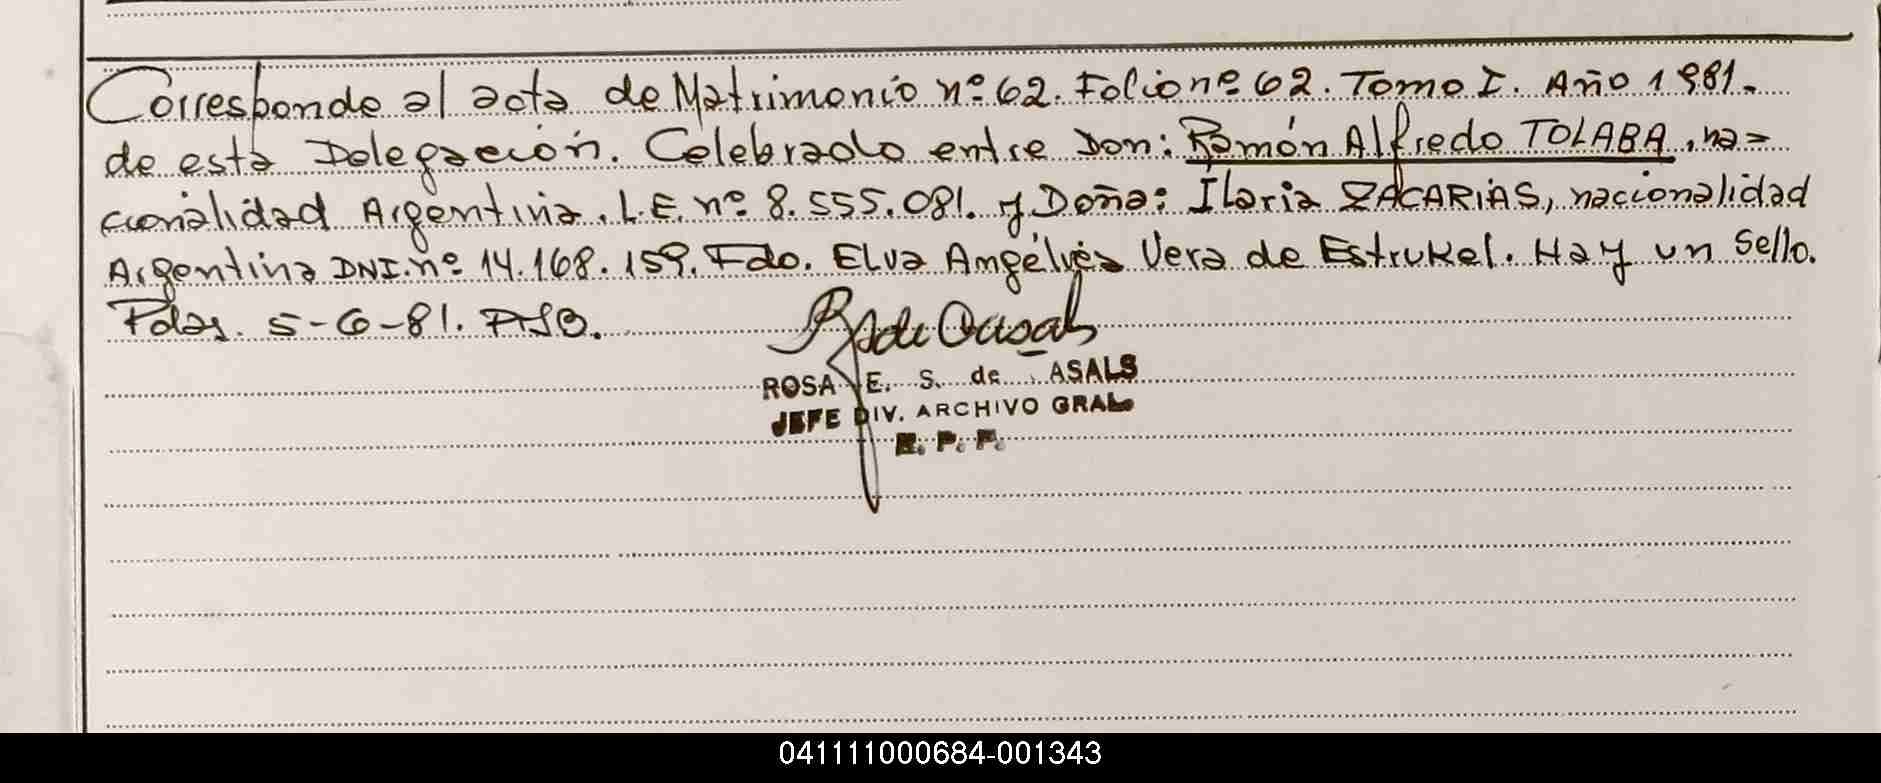 Corresponde al acta de Matrimonio nº 62. Folio nº 62. Tomo I. Año 1981.
de esta Delegación. Celebrado entre Don: Ramón Alfredo TOLABA, na=
cionalidad Argentina. L.E. nº 8.555.081. y Doña: Ilaria ZACARIAS, nacionalidad
Argentina DNI. nº 14.168.159. Fdo. Elva Angélica Vera de Estrukel. Hay un Sello.
Pdas. 5-6-81.
ROSA E. S. de ASALS
JEFE DIV. ARCHIVO GRAL
R. P. P.
041111000684-001343